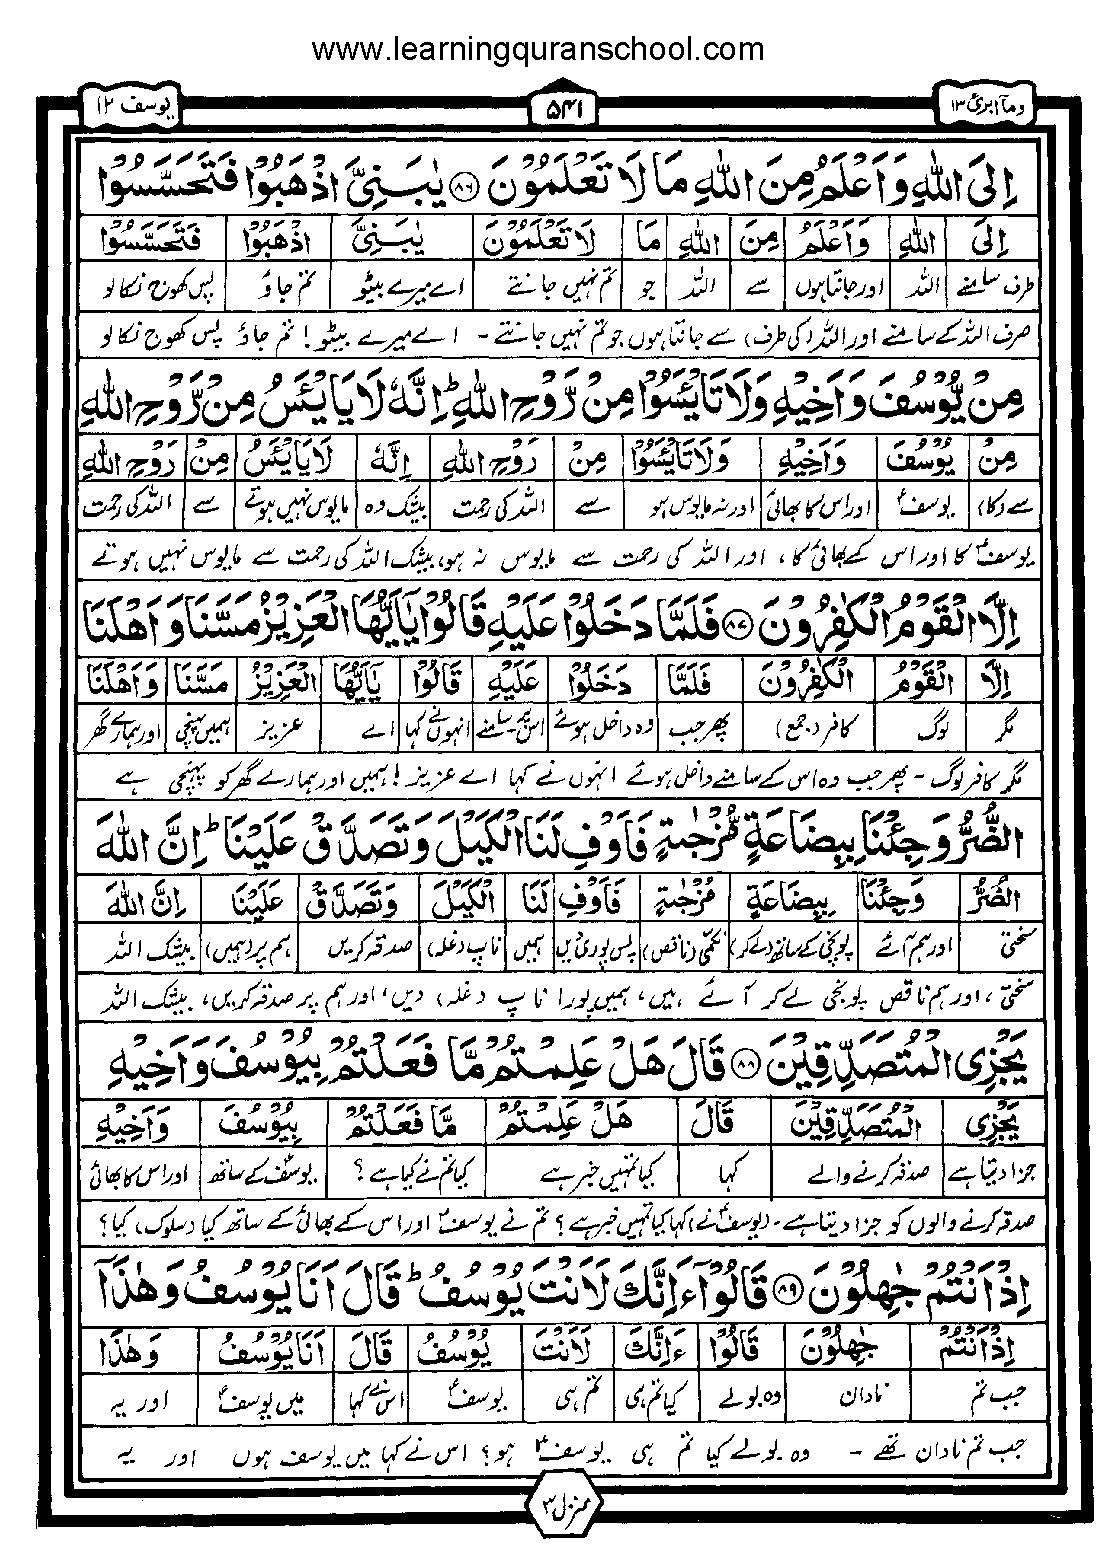 www.learningquranschool.com
وما ابرئ ۱۳
۵۴۱
یوسف ۱۲
اِلَى اللّٰهِ وَاَعْلَمُ مِنَ اللّٰهِ مَا لَا تَعْلَمُوْنَ ﴿۸۶﴾ یٰبَنِیَّ اذْهَبُوْا فَتَحَسَّسُوْا
اِلَى اللّٰهِ وَاَعْلَمُ مِنَ اللّٰهِ مَا لَا تَعْلَمُوْنَ یٰبَنِیَّ اذْهَبُوْا فَتَحَسَّسُوْا
طرف سامنے اللہ اور جانتا ہوں سے اللہ جو تم نہیں جانتے اے میرے بیٹو تم جاؤ پس کھوج نکالو
صرف اللہ کے سامنے اور اللہ (کی طرف) سے جانتا ہوں جو تم نہیں جانتے - اے میرے بیٹو! تم جاؤ پس کھوج نکالو
مِنْ یُّوْسُفَ وَاَخِیْهِ وَلَا تَایْـَٔسُوْا مِنْ رَّوْحِ اللّٰهِ ؕ اِنَّهٗ لَا یَایْـَٔسُ مِنْ رَّوْحِ اللّٰهِ
مِنْ یُوْسُفَ وَاَخِیْهِ وَلَا تَایْـَٔسُوْا مِنْ رَوْحِ اللّٰهِ اِنَّهٗ لَا یَایْـَٔسُ مِنْ رَوْحِ اللّٰهِ
سے (کا) یوسفؑ اور اس کا بھائی اور نہ مایوس ہو سے اللہ کی رحمت بیشک وہ مایوس نہیں ہوتے سے اللہ کی رحمت
یوسفؑ کا اور اس کے بھائی کا، اور اللہ کی رحمت سے مایوس نہ ہو، بیشک اللہ کی رحمت سے مایوس نہیں ہوتے
اِلَّا الْقَوْمُ الْكٰفِرُوْنَ ﴿۸۷﴾ فَلَمَّا دَخَلُوْا عَلَیْهِ قَالُوْا یٰۤاَیُّهَا الْعَزِیْزُ مَسَّنَا وَاَهْلَنَا
اِلَّا الْقَوْمُ الْكٰفِرُوْنَ فَلَمَّا دَخَلُوْا عَلَیْهِ قَالُوْا یٰۤاَیُّهَا الْعَزِیْزُ مَسَّنَا وَاَهْلَنَا
مگر لوگ کافر (جمع) پھر جب وہ داخل ہوئے اس کے سامنے انہوں نے کہا اے عزیز ہمیں پہنچی اور ہمارے گھر
مگر کافر لوگ - پھر جب وہ اس کے سامنے داخل ہوئے انہوں نے کہا اے عزیز! ہمیں اور ہمارے گھر کو پہنچی ہے
الضُّرُّ وَجِئْنَا بِبِضَاعَةٍ مُّزْجٰىةٍ فَاَوْفِ لَنَا الْكَیْلَ وَتَصَدَّقْ عَلَیْنَا ؕ اِنَّ اللّٰهَ
الضُّرُّ وَجِئْنَا بِبِضَاعَةٍ مُزْجٰىةٍ فَاَوْفِ لَنَا الْكَیْلَ وَتَصَدَّقْ عَلَیْنَا اِنَّ اللّٰهَ
سختی اور ہم آئے پونجی کے ساتھ (لے کر) نکمی (ناقص) پس پوری دیں ہمیں ناپ (غلہ) صدقہ کریں ہم پر (ہمیں) بیشک اللہ
سختی، اور ہم ناقص پونجی لے کر آئے ہیں، ہمیں پورا ناپ (غلہ) دیں، اور ہم پر صدقہ کریں، بیشک اللہ
یَجْزِی الْمُتَصَدِّقِیْنَ ﴿۸۸﴾ قَالَ هَلْ عَلِمْتُمْ مَّا فَعَلْتُمْ بِیُوْسُفَ وَاَخِیْهِ
یَجْزِی الْمُتَصَدِّقِیْنَ قَالَ هَلْ عَلِمْتُمْ مَّا فَعَلْتُمْ بِیُوْسُفَ وَاَخِیْهِ
جزا دیتا ہے صدقہ کرنے والے کہا کیا تمہیں خبر ہے کیا تم نے کیا ہے؟ یوسفؑ کے ساتھ اور اس کا بھائی
صدقہ کرنے والوں کو جزا دیتا ہے - (یوسفؑ نے) کہا کیا تمہیں خبر ہے؟ تم نے یوسفؑ اور اس کے بھائی کے ساتھ کیا (سلوک) کیا؟
اِذْ اَنْتُمْ جٰهِلُوْنَ ﴿۸۹﴾ قَالُوْۤا ءَاِنَّكَ لَاَنْتَ یُوْسُفُ ؕ قَالَ اَنَا یُوْسُفُ وَهٰذَاۤ
اِذْ اَنْتُمْ جٰهِلُوْنَ قَالُوْۤا ءَاِنَّكَ لَاَنْتَ یُوْسُفُ قَالَ اَنَا یُوْسُفُ وَهٰذَا
جب تم نادان وہ بولے کیا تم ہی تم ہی یوسفؑ اس نے کہا میں یوسفؑ اور یہ
جب تم نادان تھے - وہ بولے کیا تم ہی یوسفؑ ہو؟ اس نے کہا میں یوسف ہوں اور یہ
منزل ۳